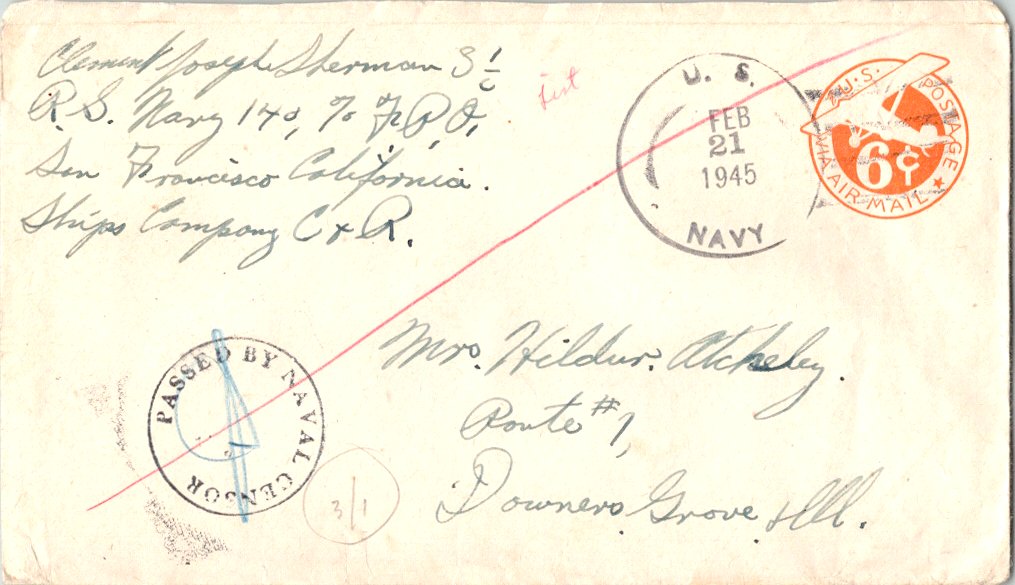 Clement Joseph Sherman S 1/c
R.S. Navy 140, % F.P.O,
San Francisco California.
Ships Company C & R.
U. S.
FEB
21
1945
NAVY
U.S. POSTAGE
6¢
VIA AIR MAIL
PASSED BY NAVAL CENSOR
3/1
Mrs. Hildur. Atcheley.
Route #1,
Downers Grove Ill.